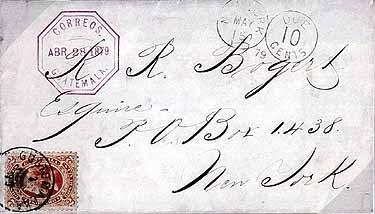 CORREOS
ABR 28 1879
GUATEMALA
MAY
DUE
10
CENTS
R. R. Bogert
Esquire
P. O Box 1438.
New York.